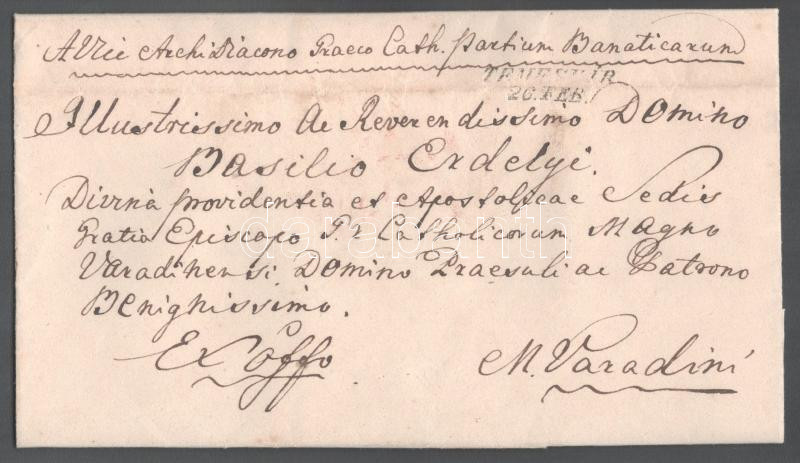 A Vice Archi Diacono Graeco Cath. partium Banaticarum
TEMESVÁR
26. FEB.
Illustrissimo Ac Reverendissimo Domino
Basilio Erdelyi.
Divinâ providentia et Apostolicae Sedis
Gratia Episcopo G. r. Catholicorum Magno
Varadinensi Domino Praesuli ac Patrono
Benignissimo.
Ex offo M. Varadini
darabanth